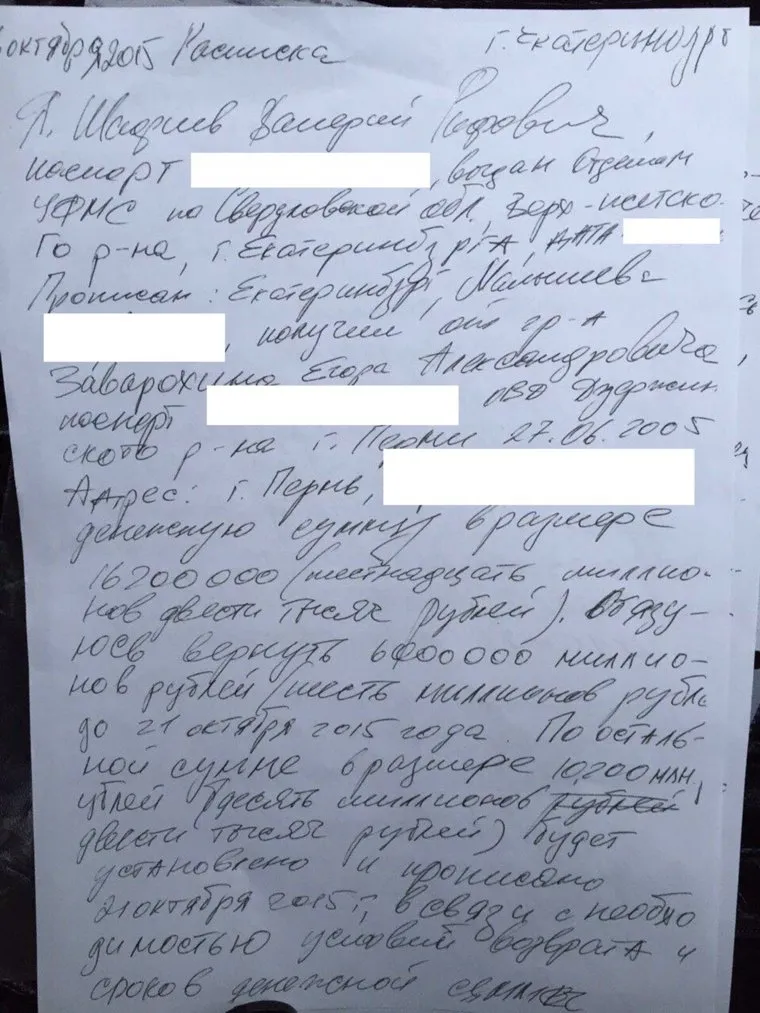 октября 2015 Расписка г. Екатеринбург
Я, Шадриев Валерий Рифович,
паспорт , выдан Отделом
УФМС по Свердловской обл, Верх-исетско-
го р-на, г. Екатеринбурга, дата
Прописан: Екатеринбург, Малышева
, получил от гр-а
Заварохина Егора Александровича,
паспорт ОВД Дзержин
ского р-на г. Перми 27.06.2005
Адрес: г. Пермь,
денежную сумму в размере
16200000 (шестнадцать миллио-
нов двести тысяч рублей). Обязу-
юсь вернуть 6000000 миллио-
нов рублей (шесть миллионов рубле
до 21 октября 2015 года. По осталь-
ной сумме в размере 10200 млн,
ублей (десять миллионов рублей
двести тысяч рублей) будет
установлено и прописано
21 октября 2015 г, в связи с необхо
димостью условий возврата и
сроков денежной суммы